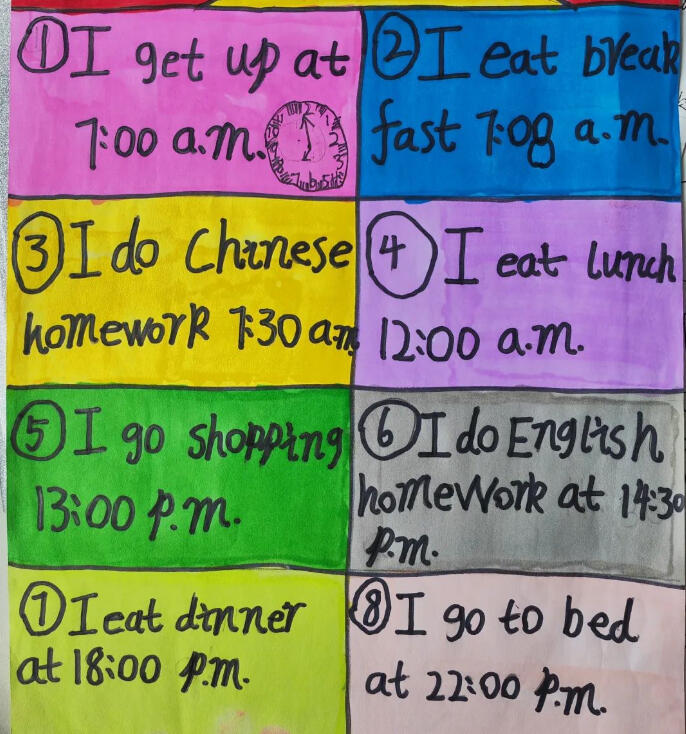 ① I get up at
7:00 a.m.
② I eat break
fast 7:08 a.m.
③ I do Chinese
homework 7:30 a.m
④ I eat lunch
12:00 a.m.
⑤ I go shopping
13:00 p.m.
⑥ I do English
homework at 14:30
p.m.
⑦ I eat dinner
at 18:00 p.m.
⑧ I go to bed
at 22:00 p.m.